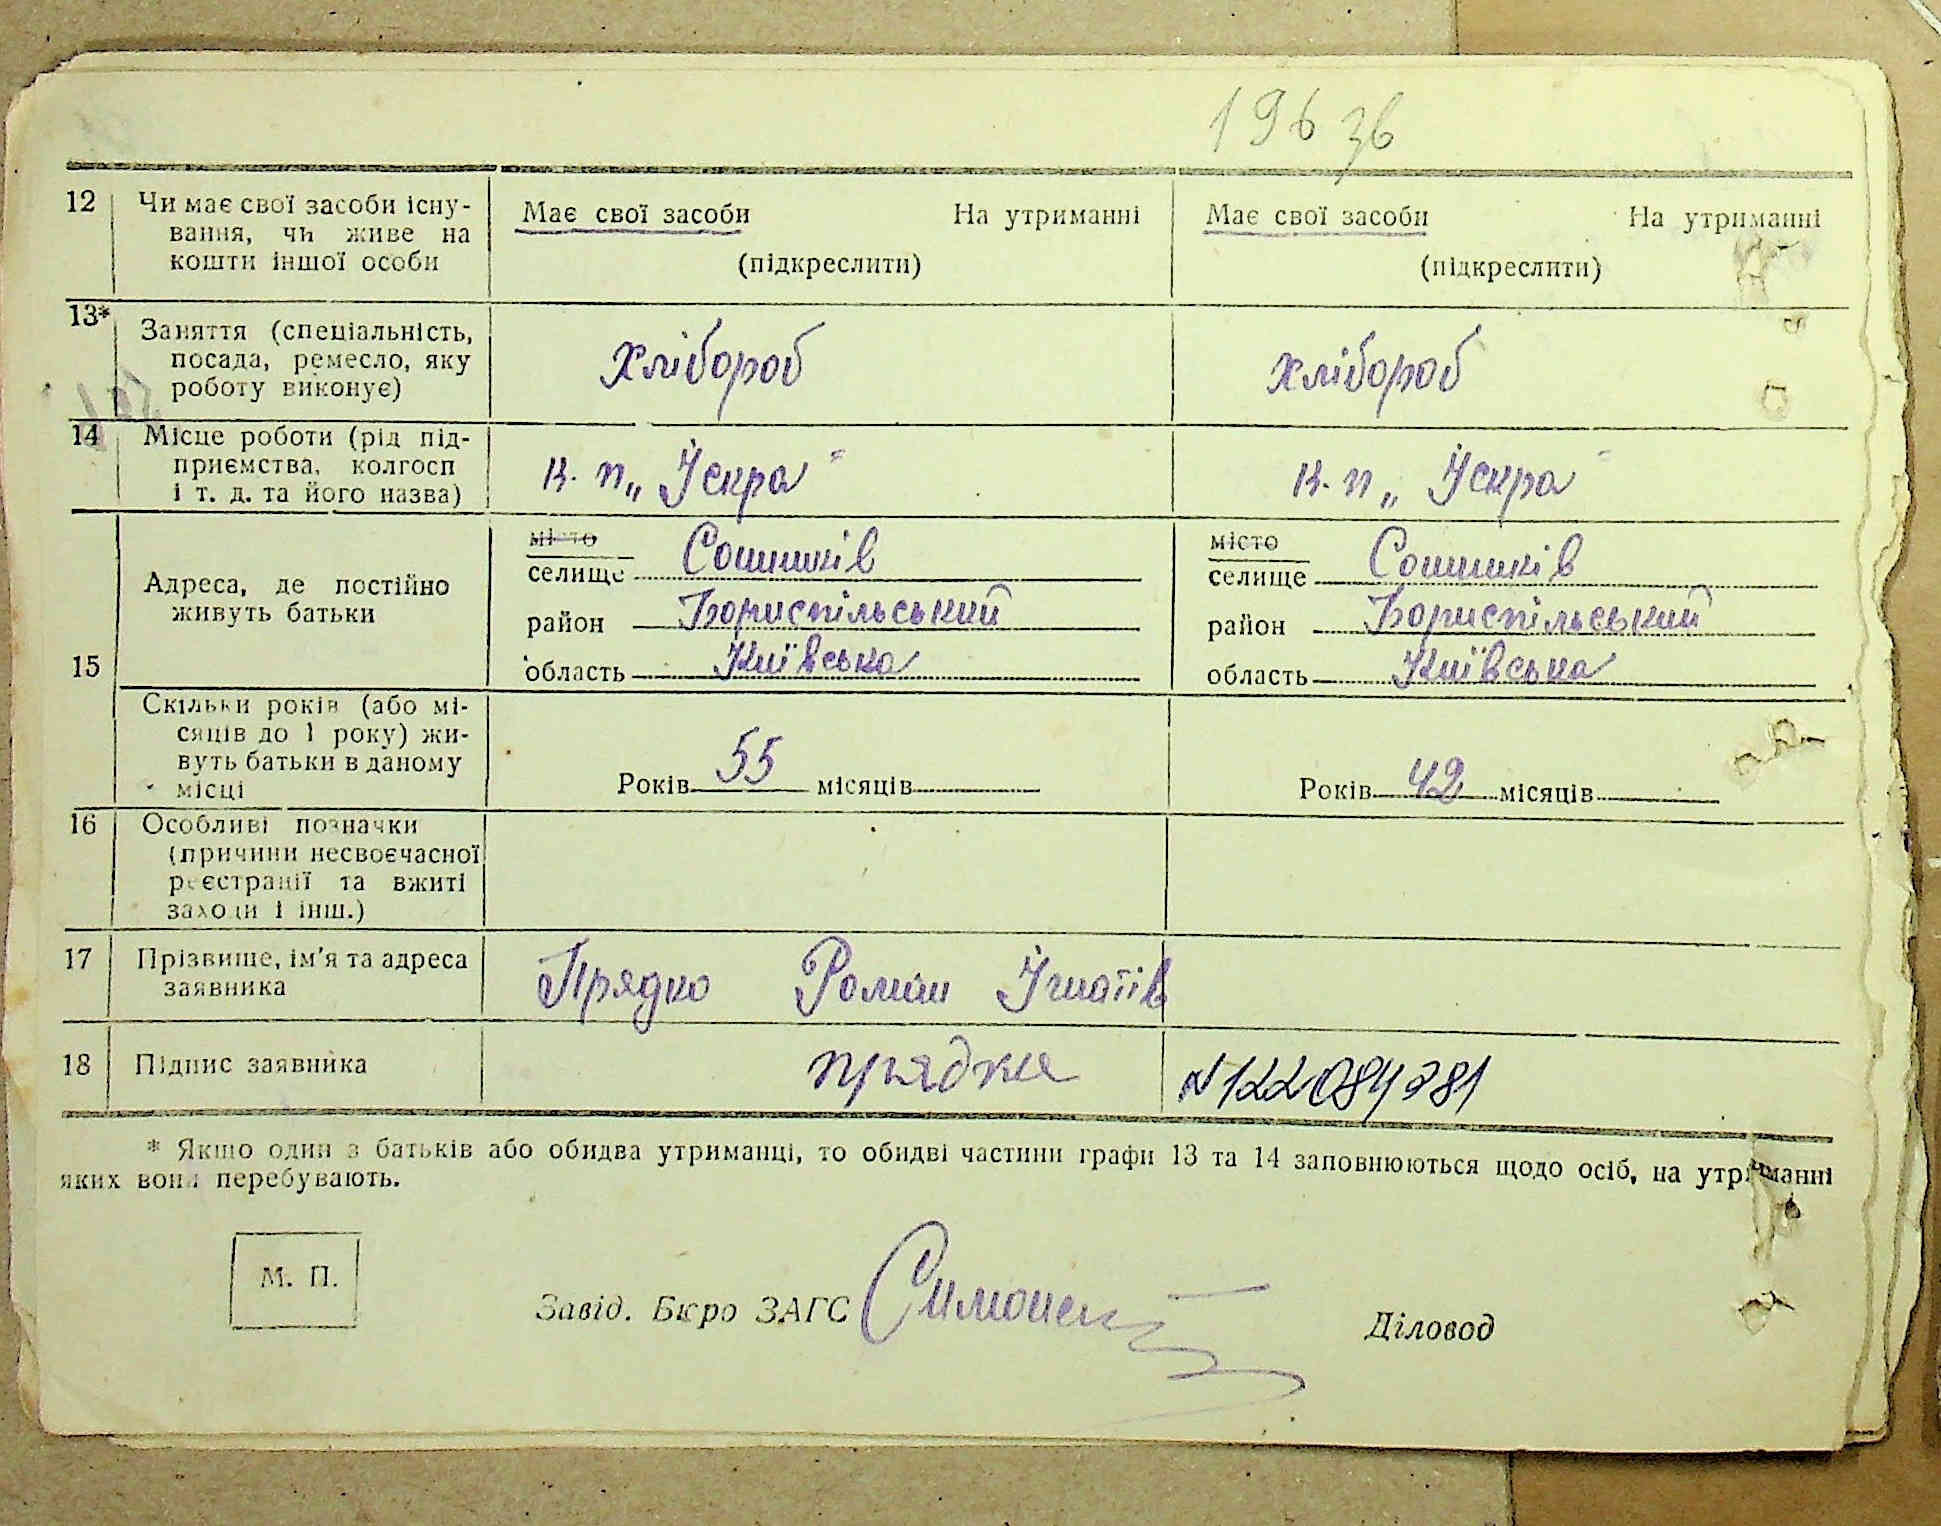 196 зв
12 Чи має свої засоби існу-
вання, чи живе на
кошти іншої особи
Має свої засоби На утриманні
(підкреслити)
Має свої засоби На утриманні
(підкреслити)
13* Заняття (спеціальність,
посада, ремесло, яку
роботу виконує)
Хлібороб
Хлібороб
14 Місце роботи (рід під-
приємства, колгосп
і т. д. та його назва)
к. п „Іскра"
к. п „Іскра"
15 Адреса, де постійно
живуть батьки
місто
селище Сошників
район Бориспільський
область Київська
місто
селище Сошників
район Бориспільський
область Київська
Скільки років (або мі-
сяців до 1 року) жи-
вуть батьки в даному
місці
Років 55 місяців
Років 42 місяців
16 Особливі позначки
(причини несвоєчасної
реєстрації та вжиті
заходи і інш.)
17 Прізвище, ім'я та адреса
заявника
Прядко Роман Ігнатів
18 Підпис заявника
прядко
N122084381
* Якщо один з батьків або обидва утриманці, то обидві частини графи 13 та 14 заповнюються щодо осіб, на утриманні
яких вони перебувають.
М. П.
Завід. Бюро ЗАГС
Діловод